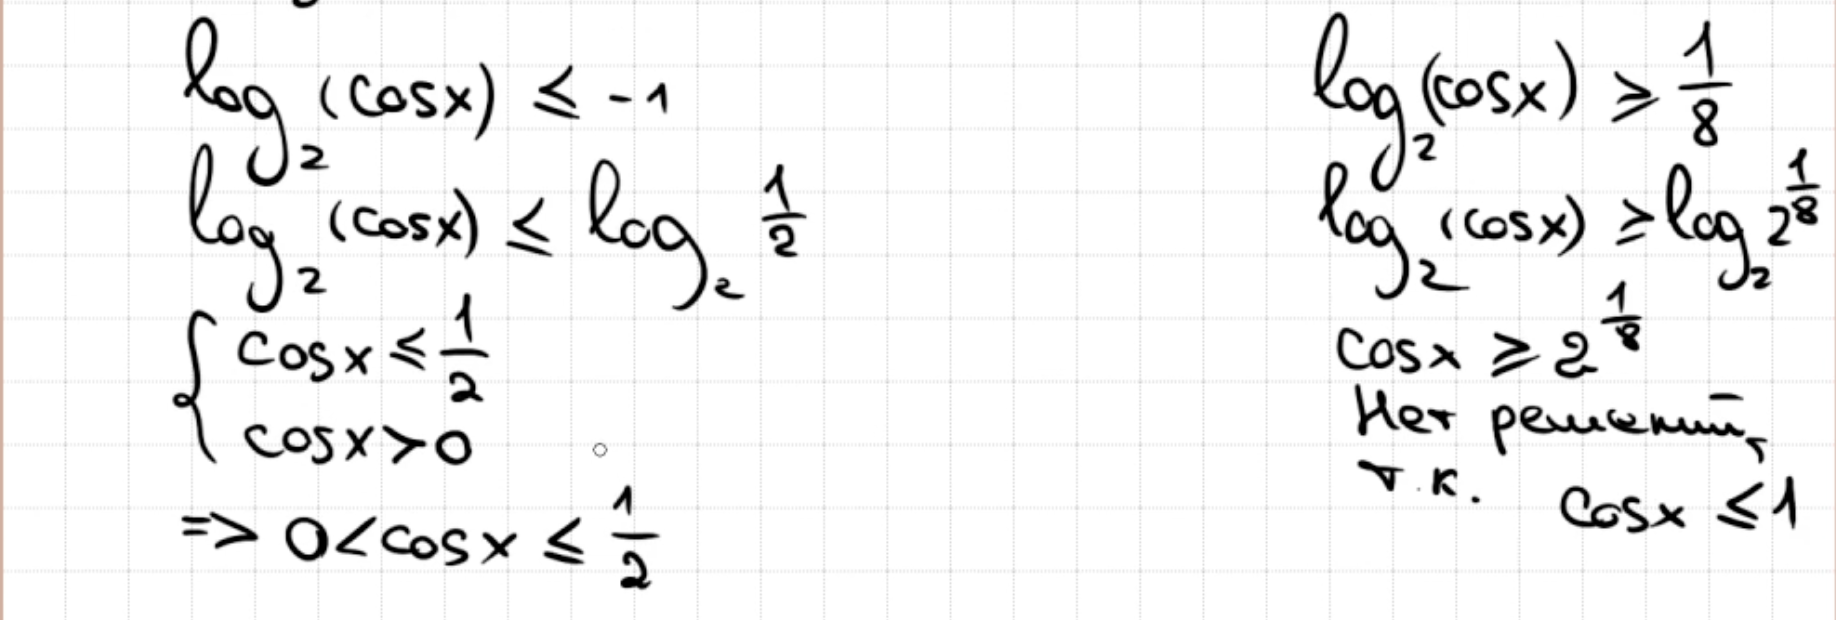 log₂(cosx) ≤ -1
log₂(cosx) ≤ log₂ 1/2
{ cosx ≤ 1/2
cosx > 0
=> 0 < cosx ≤ 1/2
log₂(cosx) ≥ 1/8
log₂(cosx) ≥ log₂ 2^(1/8)
cosx ≥ 2^(1/8)
Нет решений,
т.к. cosx ≤ 1